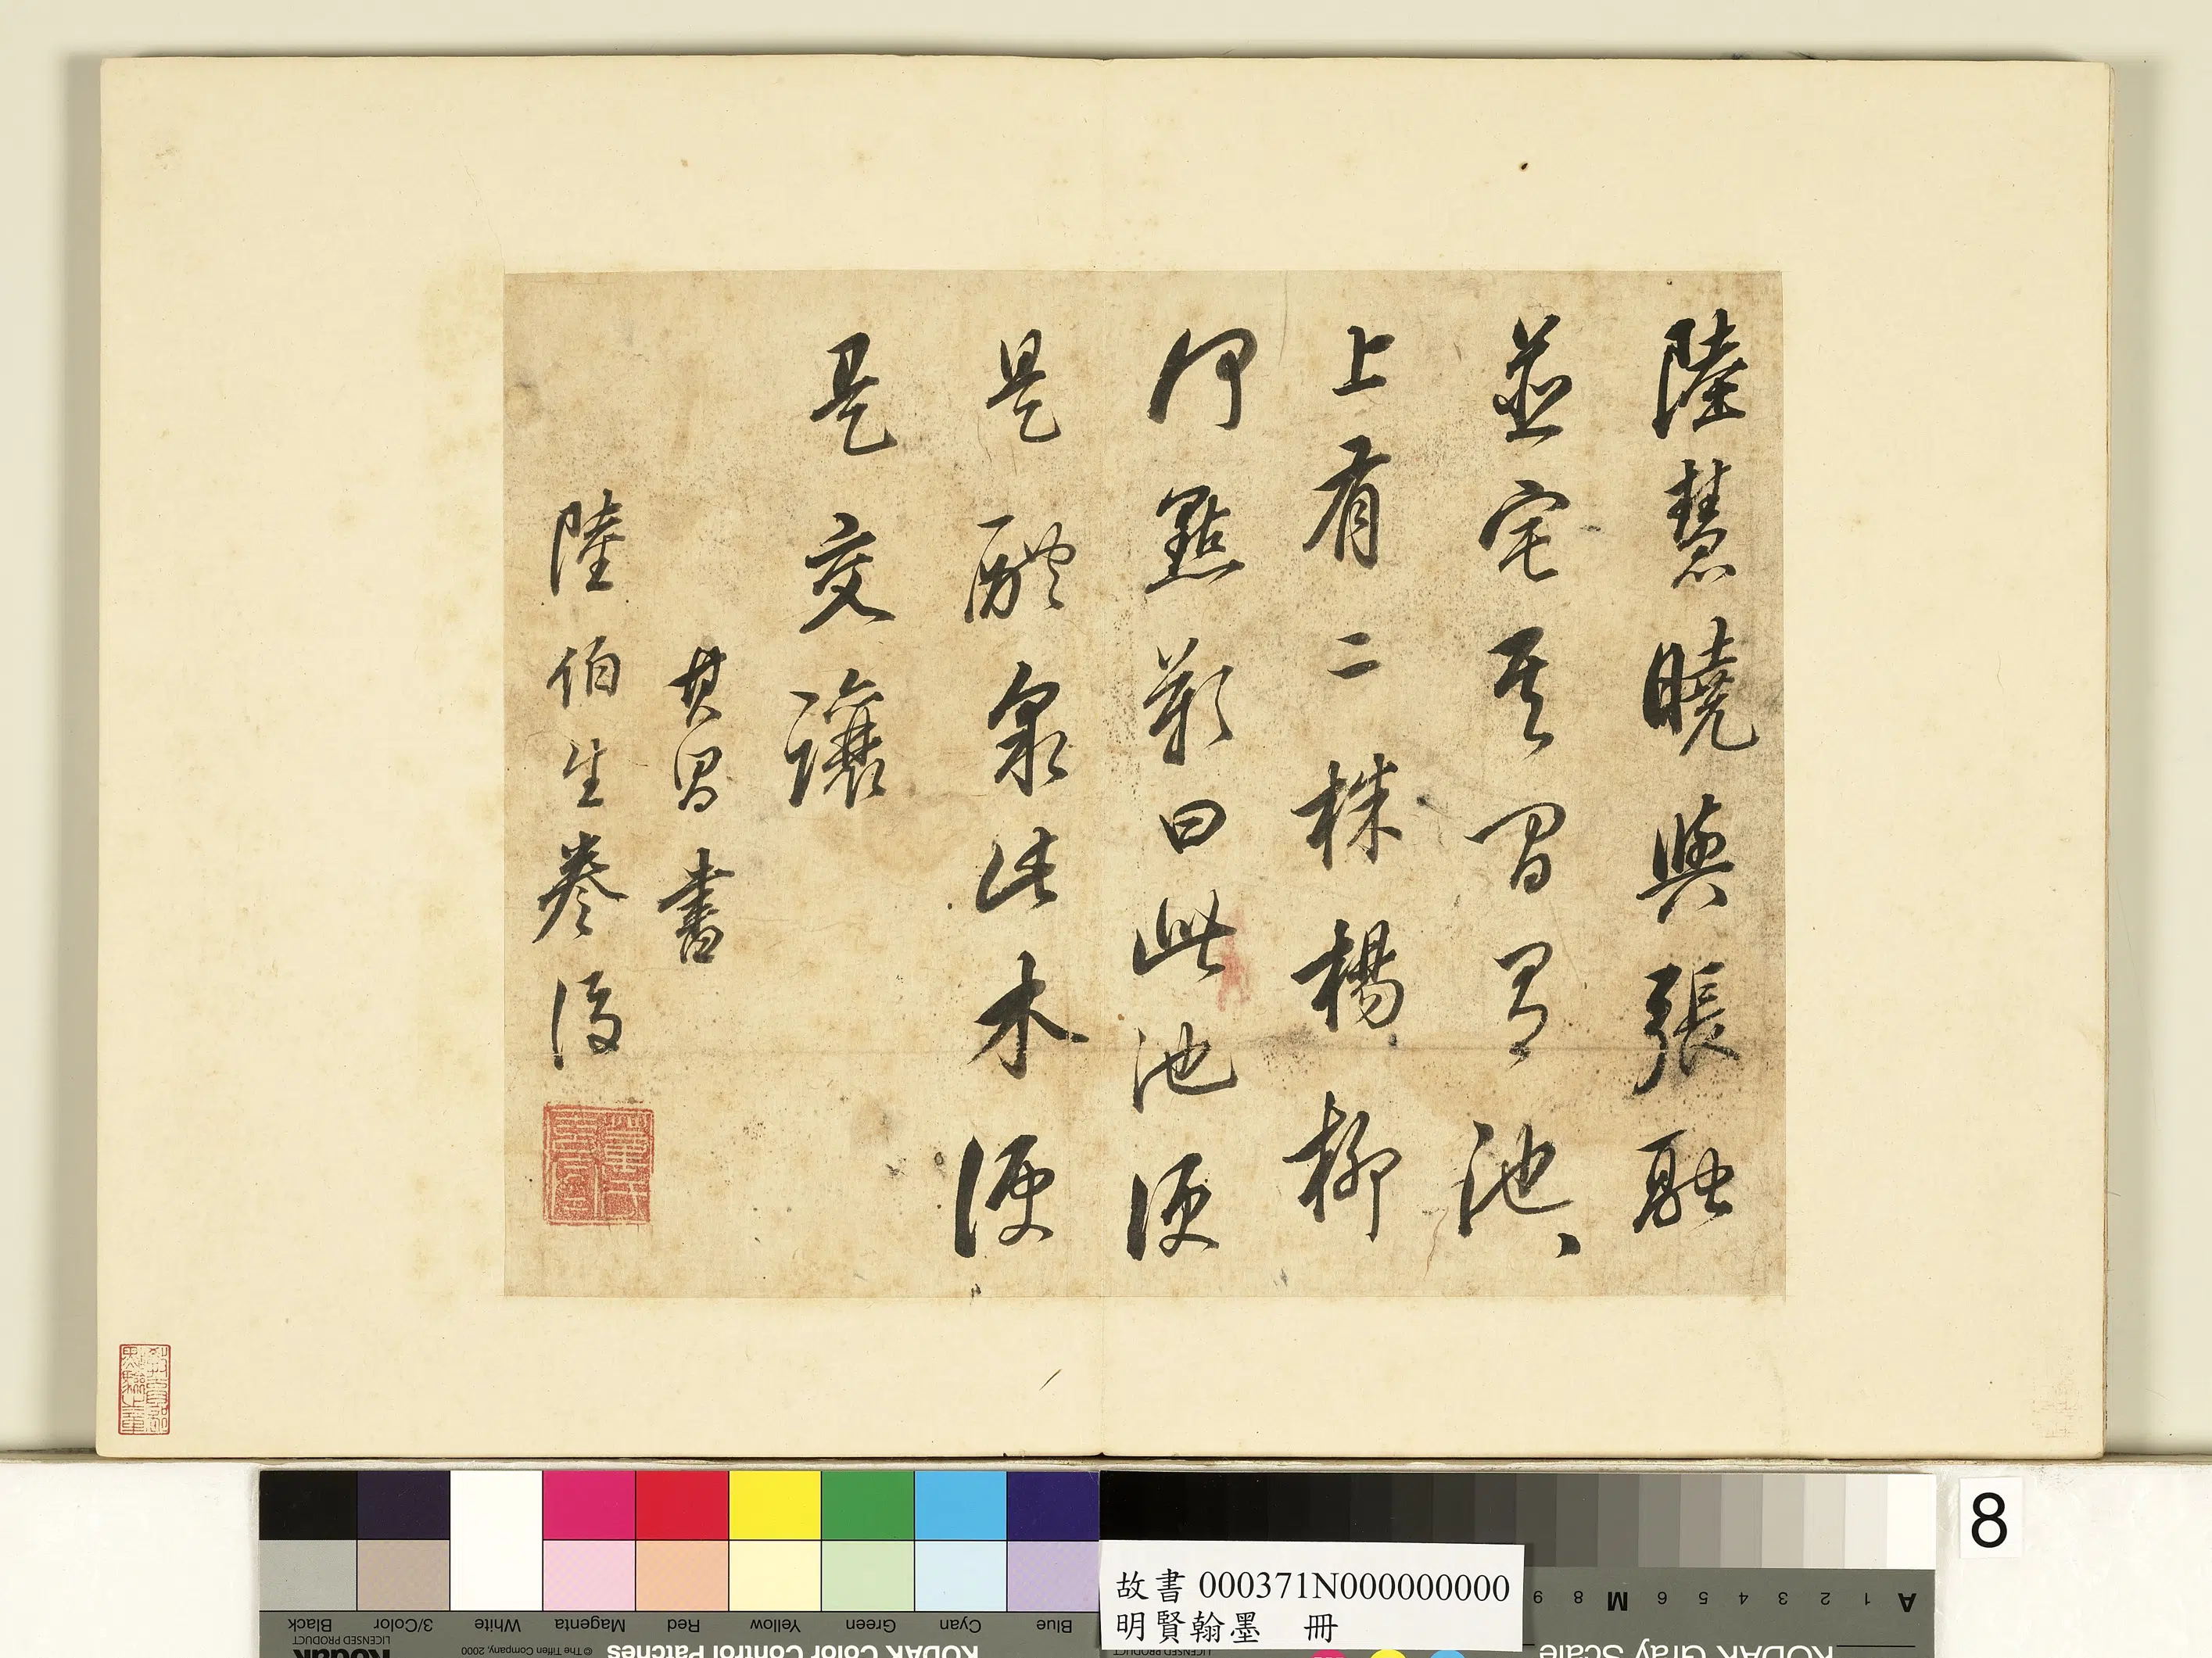 陸慧曉與張融
並宅其間有池、
上有二株楊柳
何點歎曰此池便
是醴泉此木便
是交讓
其昌書
陸伯生卷後
教育部
點驗之章
8
故書 000371N000000000
明賢翰墨 冊
Black
3/Color
White
Magenta
Red
Yellow
Green
Cyan
Blue
LICENSED PRODUCT
© The Tiffen Company, 2000
Kodak
KODAK Color Control Patches
A 1 2 3 4 5 6 M 8 9
KODAK Gray Scale